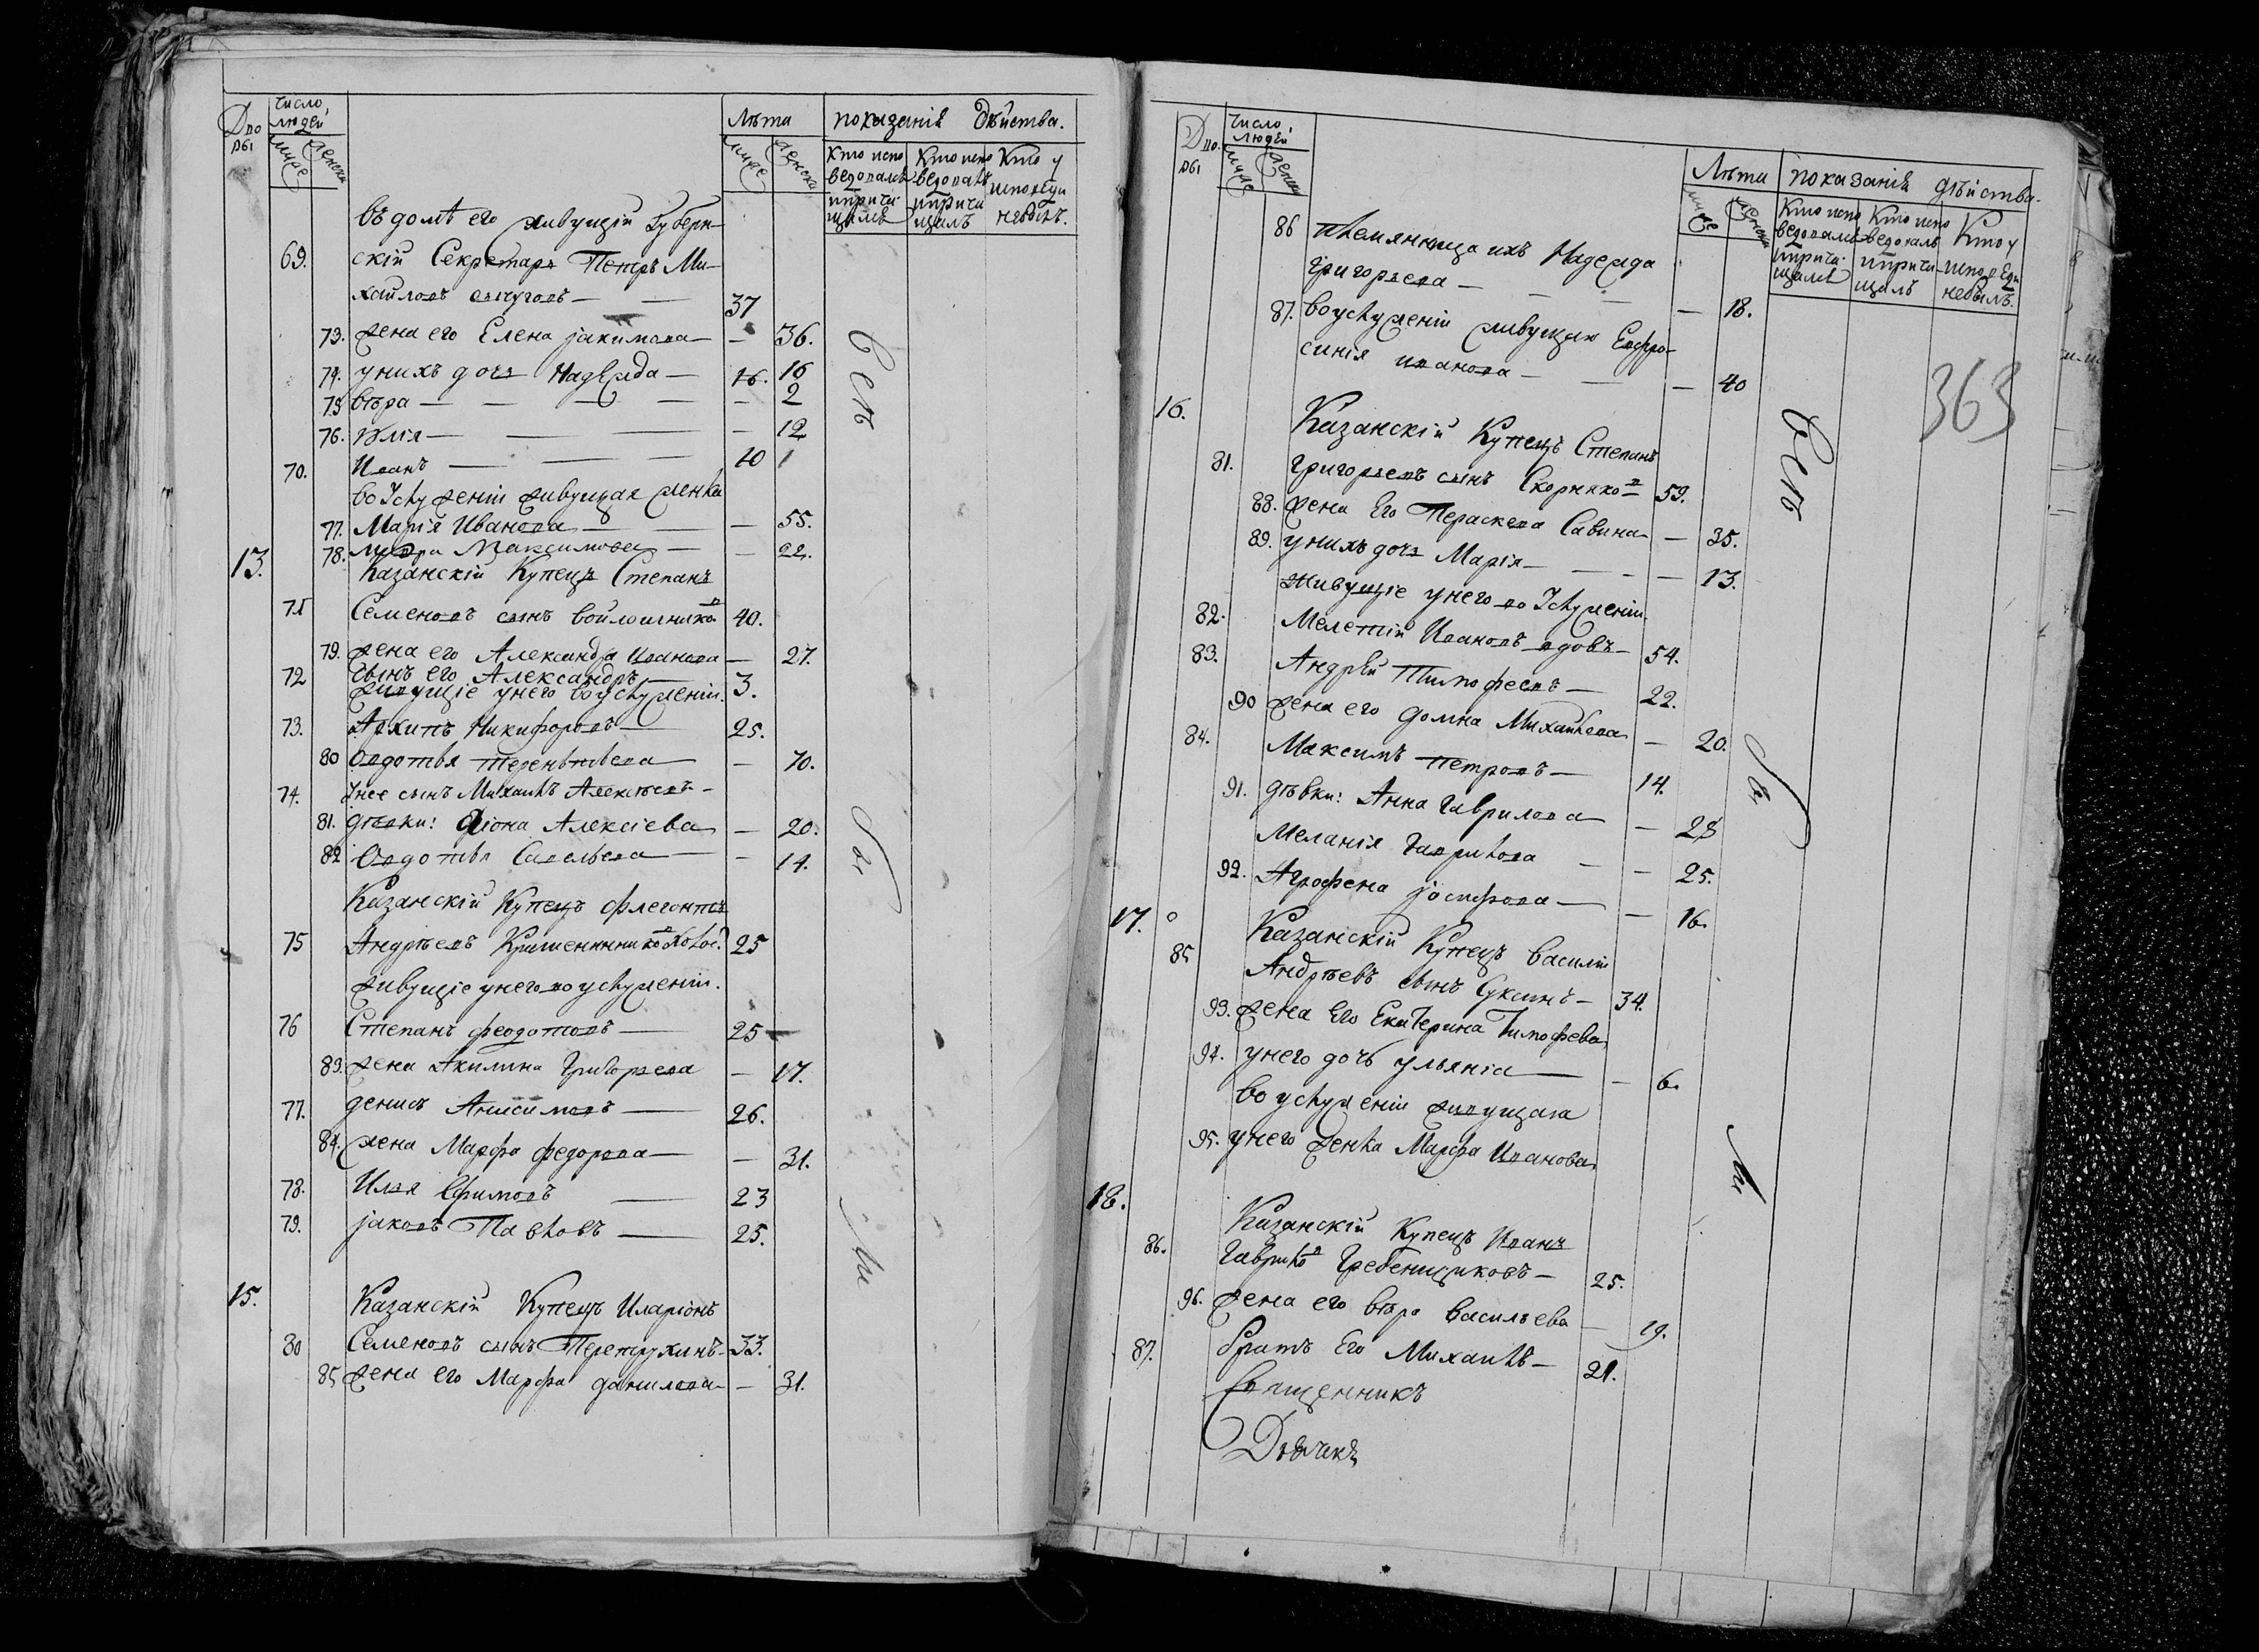 Дворы
число людей
муже
женска
Лѣта
муже
женска
показанія дѣйства.
Кто исповедовался и причищался
Кто исповедовалъ и причищалъ
Кто у исповеди небылъ.
въ домѣ его живущій Губерн-
69. скій Секретарь Петръ Ми-
хайловъ — — 37
73. жена его Елена Iакимова — — 36.
74. унихъ дочь Надежда — 16. 16
75 вѣра — — — — — 2
76. Юлія — — — — 12
70. Иванъ — — — 10 1
во Услуженіи живущая женка
77. Марія Иванова — — 55.
78. Максимова — — 22.
13. Казанскій Купецъ Степанъ
71 Семеновъ сынъ войлошников 40.
79. жена его Александра Иванова — 27.
72 Сынъ его Александръ — 3.
живущіе унего во услуженіи.
73. Архипъ Никифоровъ — 25.
80 Авдотья Терентьева — 70.
74. Унее сынъ Михаилъ Алексѣевъ —
81. дѣвки: Алексіева — 20.
82 Авдотья Савельева — — 14.
Казанскій Купецъ Флегонтъ
75 Андрѣевъ холос. 25
живущіе унего во услуженіи.
76 Степанъ Феодотовъ — 25
83. жена Акилина Григорьева — 17.
77. денисъ Анисимовъ — 26.
84. жена Марфа федорова — — 31.
78. Илья Ефимовъ — 23
79. Iаковъ Павловъ — 25.
15. Казанскій Купецъ Иларіонъ
80 Семеновъ сынъ Перетрухинъ — 33.
85 жена его Марфа данилова — — 31.
Всѣ
Дворы
число людей
муже
женска
Лѣта
муже
женска
показанія дѣйства.
Кто исповедовался и причищался
Кто исповедовалъ и причищалъ
Кто у исповеди небылъ.
363
86 племянница ихъ Надежда
Григорьева — — — — 18.
87. во услуженіи живущая Евфро-
синія иванова — — — 40
16. Казанскій Купецъ Степанъ
81. Григорьевъ сынъ Скорняков 59.
88. жена Его Параскева Савина — — 35.
89. унихъ дочь Марія — — — — 13.
живущіе унего во Услуженіи
82. Мелетій Ивановъ вдовъ — 54.
83. Андрей Тимофеевъ — 22.
90 жена его домна Михайлова — 20.
84. Максимъ Петровъ — 14.
91. дѣвки: Анна Гаврилова — — 28
Меланія Гаврилова — — 25.
92. Агрофена Iосифова — — 16.
17. Казанскій Купецъ василій
85 Андрѣевъ сынъ Суксинъ — 34.
93. жена Его Екатерина Тимофева
94. унего дочь ульянia — — 6.
во услуженіи живущая
95. унего женка Марфа Иванова
18. Казанскій Купецъ Иванъ
86. Гаврилов Гребенщиковъ — 25.
96. жена его вѣра васильева — 19.
87. братъ Его Михаилъ — 21.
Священникъ
Дьячикъ
Всѣ